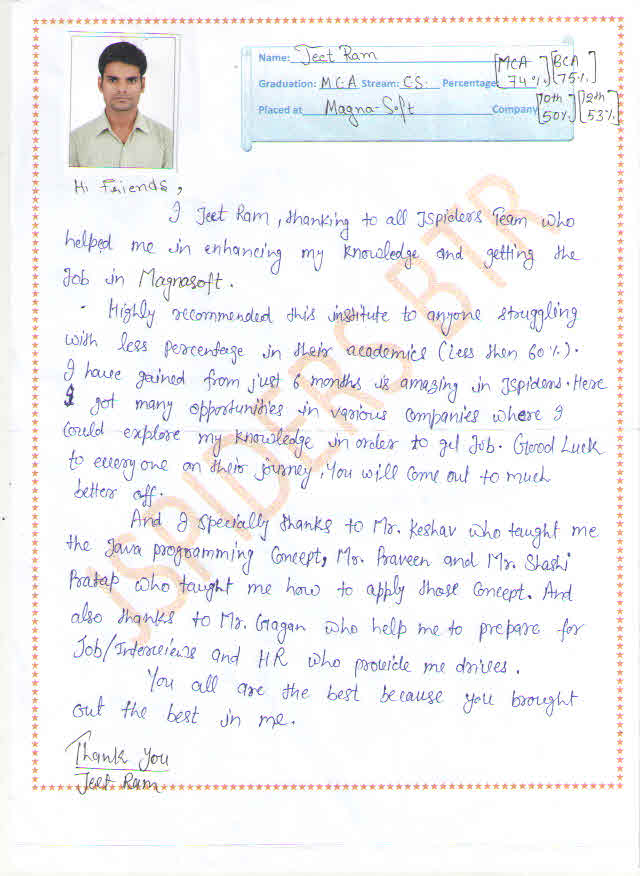 Name: Jeet Ram
Graduation: MCA Stream: CS. Percentage
MCA 74% BCA 75%
Placed at Magna-Soft Company
10th 50% 12th 53%
Hi Friends,
I Jeet Ram, thanking to all JSpiders Team who
helped me in enhancing my knowledge and getting the
Job in Magnasoft.
Highly recommended this institute to anyone struggling
with less percentage in their academics (less then 60%).
I have gained from just 6 months is amazing in JSpiders. Here
I got many opportunities in various companies where I
could explore my knowledge in order to get Job. Good Luck
to everyone on their journey, You will come out to much
better off.
And I specially thanks to Mr. Keshav who taught me
the Java programming Concept, Mr. Praveen and Mr. Shashi
Pratap who taught me how to apply those Concept. And
also thanks to Mr. Gagan who help me to prepare for
Job/Interviews and HR who provide me drives.
You all are the best because you brought
out the best in me.
Thank You
Jeet Ram
JSPIDERS BTR